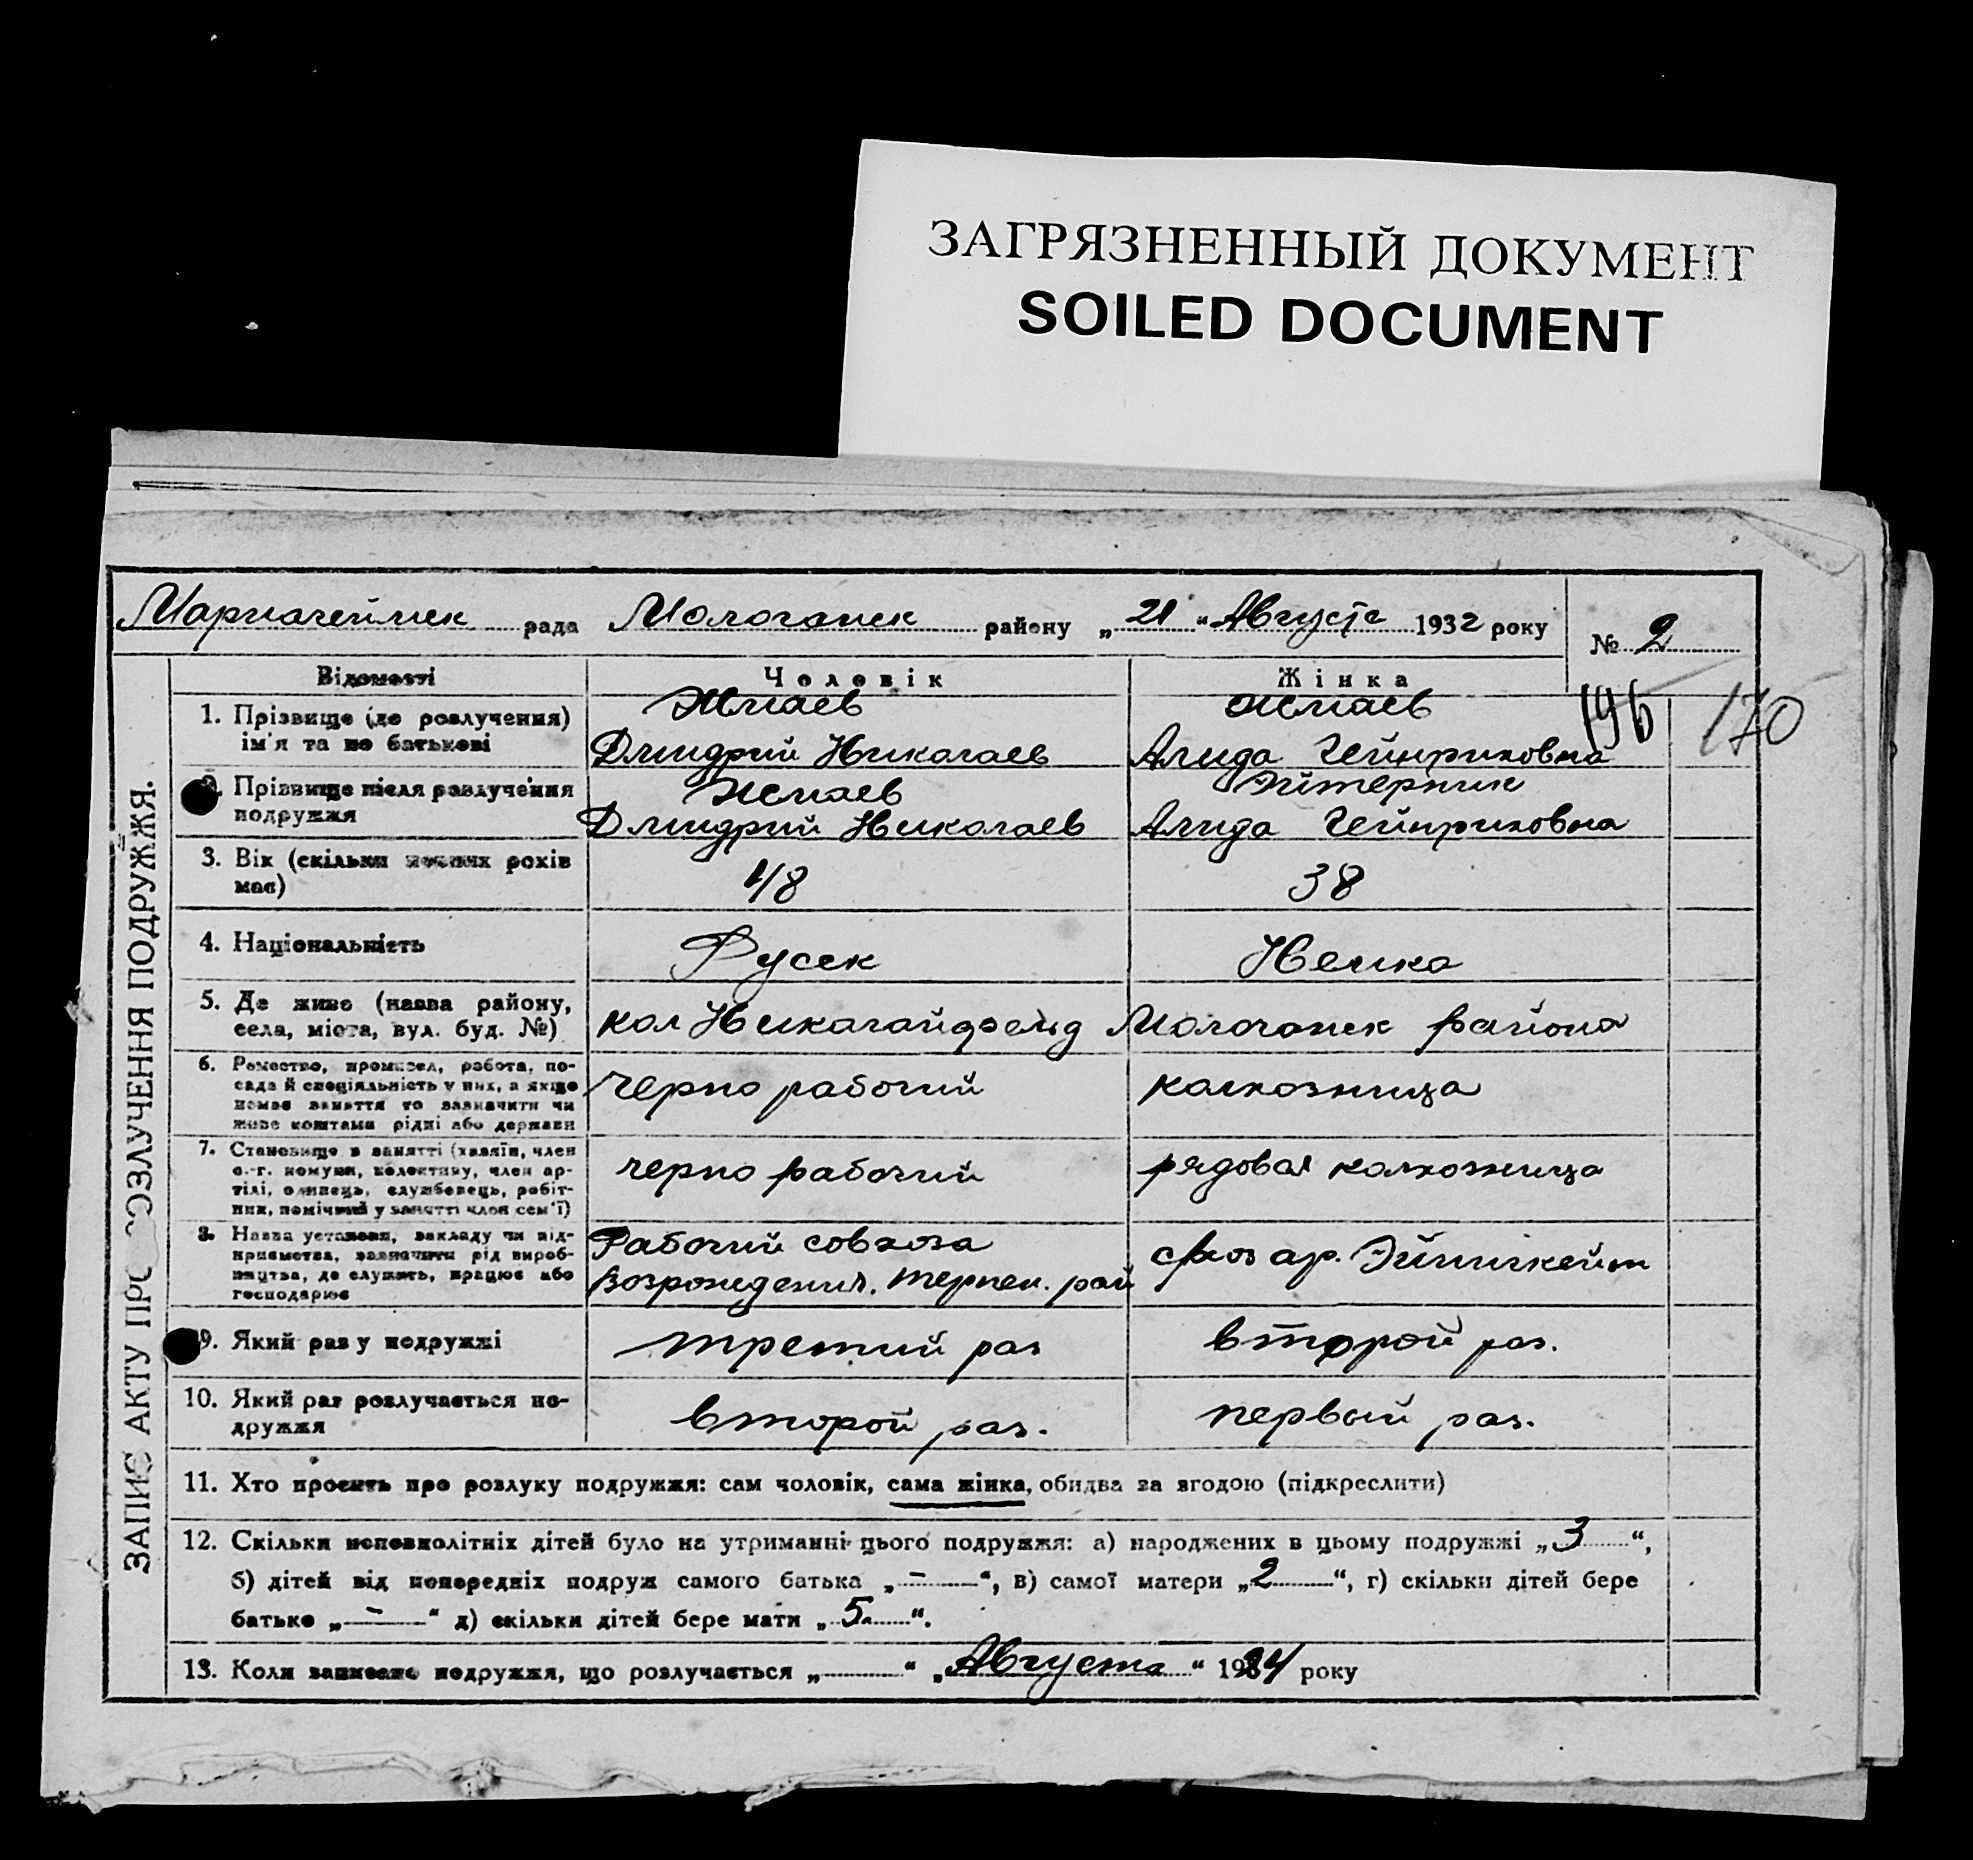 ЗАГРЯЗНЕННЫЙ ДОКУМЕНТ
SOILED DOCUMENT
Мариагеймск рада Молочанск району „21“ Августа 1932 року № 2
196 170
ЗАПИС АКТУ ПРО РОЗЛУЧЕННЯ ПОДРУЖЖЯ.
Відомості Чоловік Жінка
1. Прізвище (до розлучення) Жмаев Жмаев
ім'я та по батькові Дмидрий Николаев Алида Гейнриховна
2. Прізвище після розлучення Жмаев
подружжя Дмидрий Николаев Алида Гейнриховна
3. Вік (скільки повних років 48 38
має)
4. Національність Русек Немка
5. Де живе (назва району,
села, міста, вул. буд. №) кол Николайдфельд Молочанск района
6. Ремество, промисел, робота, по-
сада й спеціяльність у них, а якщо черно рабочий колхозница
немає заняття то зазначити чи
живе коштами рідні або держави
7. Становище в занятті (хазяїн, член
с.-г. комуни, колективу, член ар- черно рабочий рядовая колхозница
тілі, одинець, службовець, робіт-
ник, помічний у занятті член сем'ї)
8. Назва установи, закладу чи під- Рабочий совхоза
приємства, зазначити рід вироб- ар.
ництва, де служить, працює або Возрождения. Терпен. рай
господарює
9. Який раз у подружжі третий раз второй раз.
10. Який раз розлучається по-
дружжя второй раз. первый раз.
11. Хто просить про розлуку подружжя: сам чоловік, сама жінка, обидва за згодою (підкреслити)
12. Скільки неповнолітніх дітей було на утриманні цього подружжя: а) народжених в цьому подружжі „3“,
б) дітей від попередніх подруж самого батька „-“, в) самої матери „2“, г) скільки дітей бере
батько „-“ д) скільки дітей бере мати „5“.
13. Коли записано подружжя, що розлучається „ “ „Августа“ 1924 року